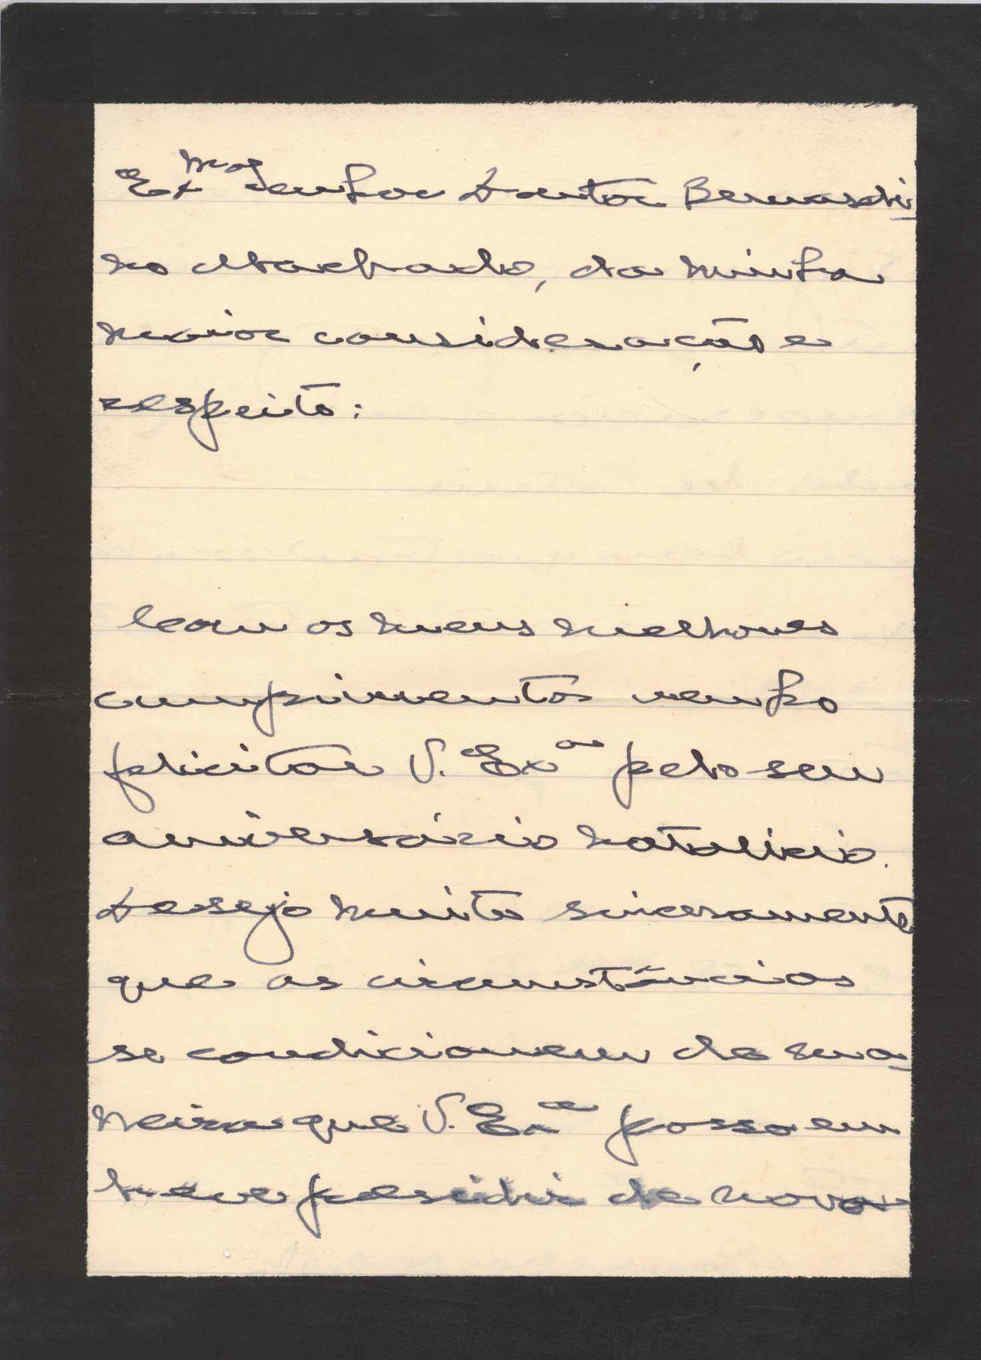 Ex.mo Senhor Doutor Bernardi-
no Machado, da minha
maior consideração e
respeito:
Com os meus melhores
cumprimentos venho
felicitar V. Exa pelo seu
aniversário natalicio.
Desejo muito sinceramente
que as circunstâncias
se condicionem de ma-
neira que V. Exa possa em
breve presidir de novo